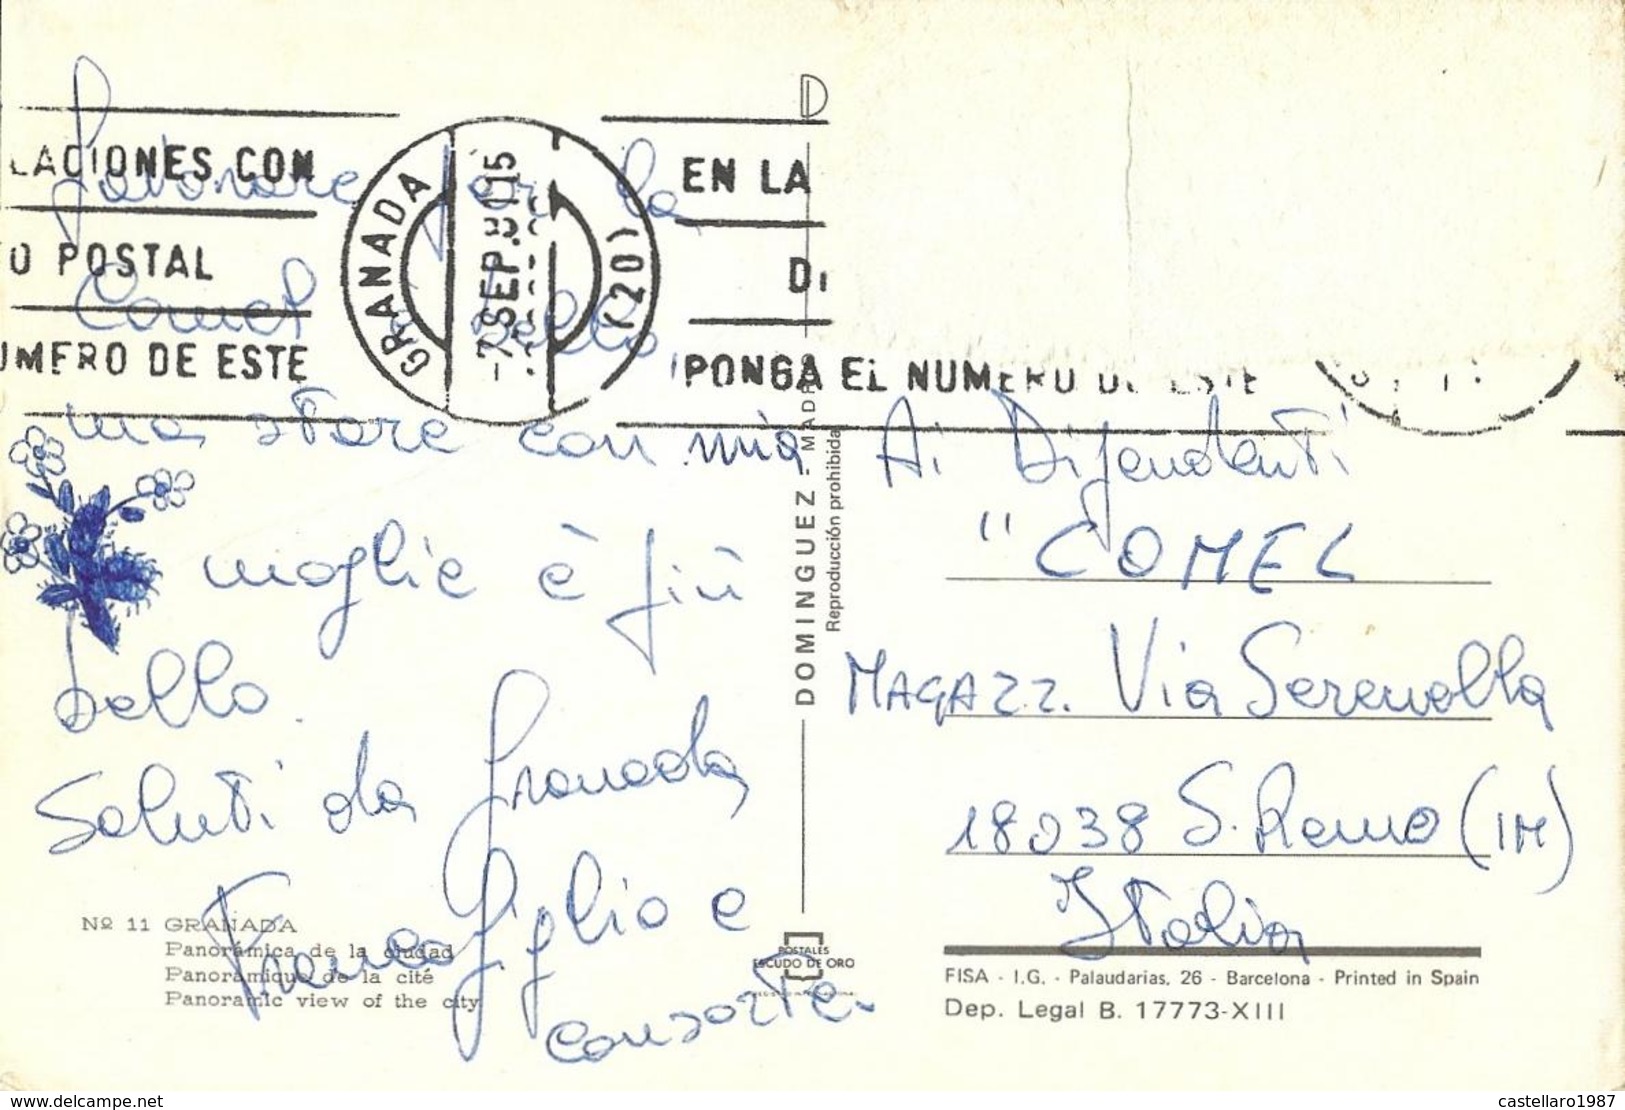 LACIONES CON
O POSTAL
UMERO DE ESTE
GRANADA
-7 SEP. 80
15
(20)
EN LA
PONGA EL NUMERO DE ESTE
Lavorare per la
Comel è bello
ma stare con mia
moglie è più
bello.
Saluti da Granada
Franco figlio e
consorte.
DOMINGUEZ - MADR
Reproducción prohibida
Ai Dipendenti
"COMEL
MAGAZZ. Via Serenella
18038 S. Remo (IM)
Italia
Nº 11 GRANADA
Panorámica de la ciudad
Panoramique de la cité
Panoramic view of the city
POSTALES
ESCUDO DE ORO
FISA - I.G. - Palaudarias, 26 - Barcelona - Printed in Spain
Dep. Legal B. 17773-XIII
www.delcampe.net
castellaro1987